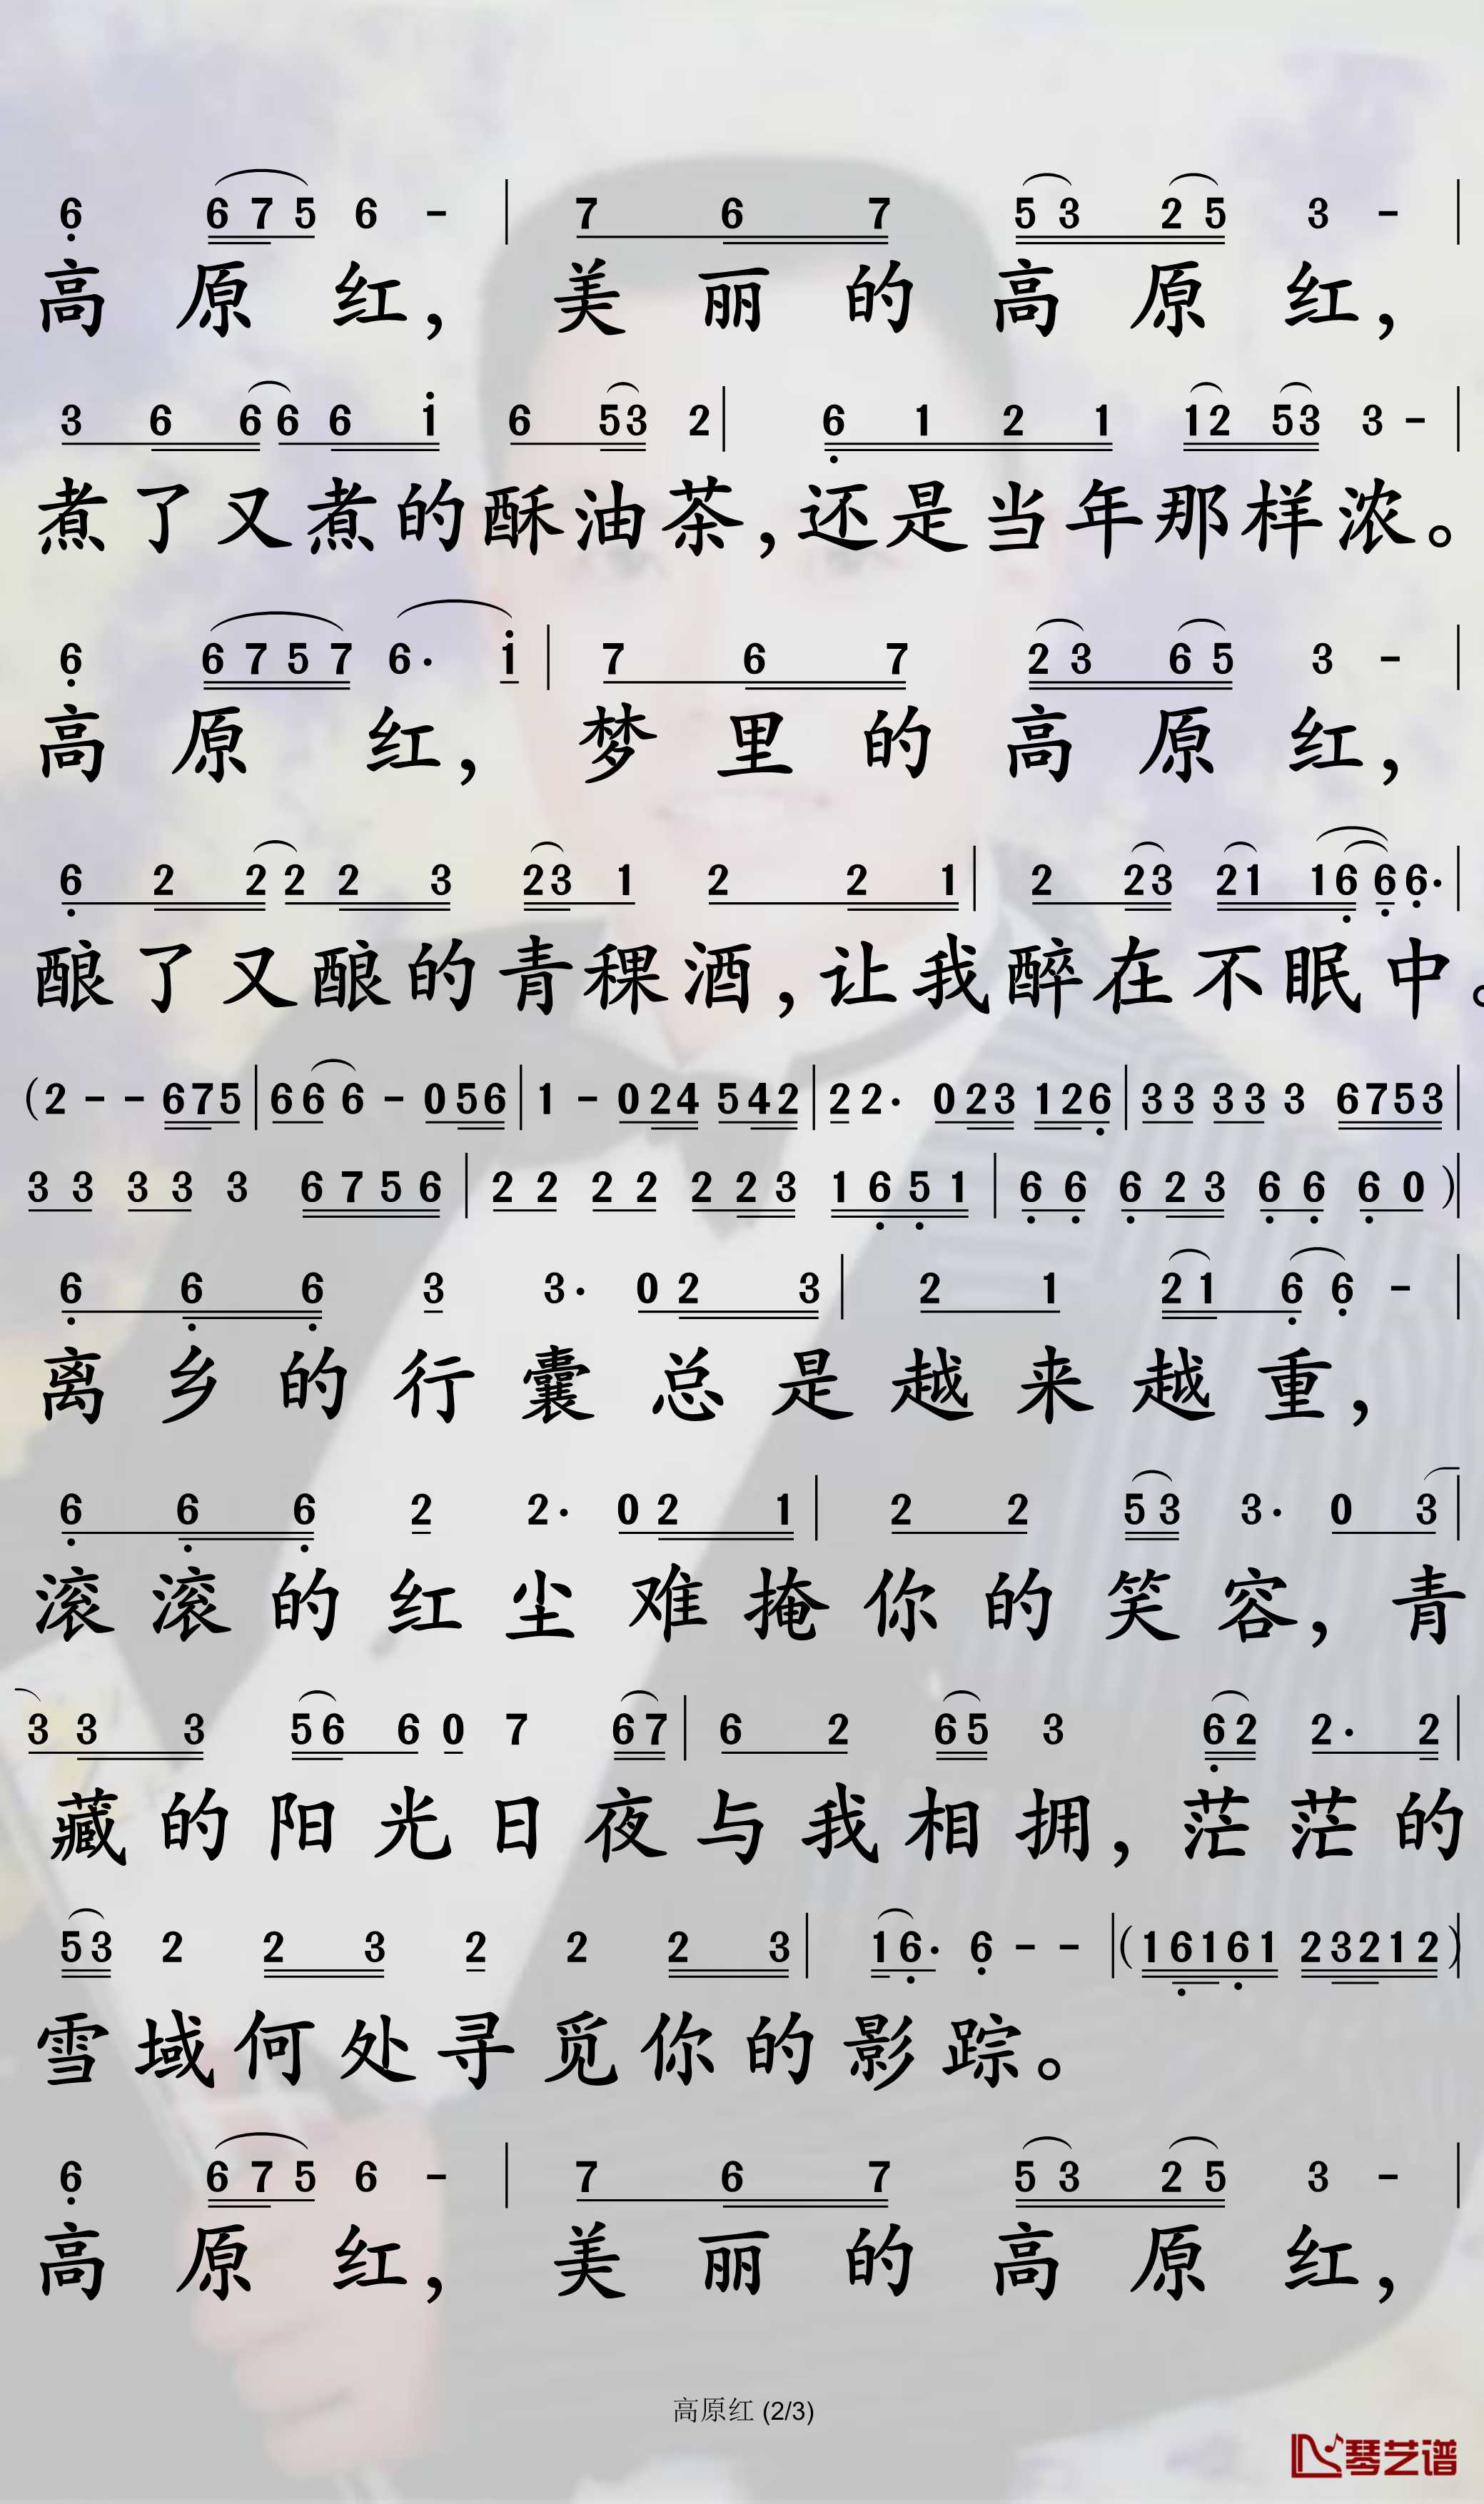 6 6 7 5 6 - | 7 6 7 5 3 2 5 3 - |
高原红，美丽的高原红，
3 6 6 6 6 i 6 5 3 2 | 6 1 2 1 1 2 5 3 3 - |
煮了又煮的酥油茶，还是当年那样浓。
6 6 7 5 7 6· i | 7 6 7 2 3 6 5 3 - |
高原红，梦里的高原红，
6 2 2 2 2 3 2 3 1 2 2 1 | 2 2 3 2 1 1 6 6 6· |
酿了又酿的青稞酒，让我醉在不眠中。
(2 - - 6 7 5 | 6 6 6 - 0 5 6 | 1 - 0 2 4 5 4 2 | 2 2· 0 2 3 1 2 6 | 3 3 3 3 3 6 7 5 3 |
3 3 3 3 3 6 7 5 6 | 2 2 2 2 2 2 3 1 6 5 1 | 6 6 6 2 3 6 6 6 0 ) |
6 6 6 3 3· 0 2 3 | 2 1 2 1 6 6 - |
离乡的行囊总是越来越重，
6 6 6 2 2· 0 2 1 | 2 2 5 3 3· 0 3 |
滚滚的红尘难掩你的笑容，青
3 3 3 5 6 6 0 7 6 7 | 6 2 6 5 3 6 2 2· 2 |
藏的阳光日夜与我相拥，茫茫的
5 3 2 2 3 2 2 2 3 | 1 6· 6 - - | (1 6 1 6 1 2 3 2 1 2) |
雪域何处寻觅你的影踪。
6 6 7 5 6 - | 7 6 7 5 3 2 5 3 - |
高原红，美丽的高原红，
高原红 (2/3)
琴艺谱